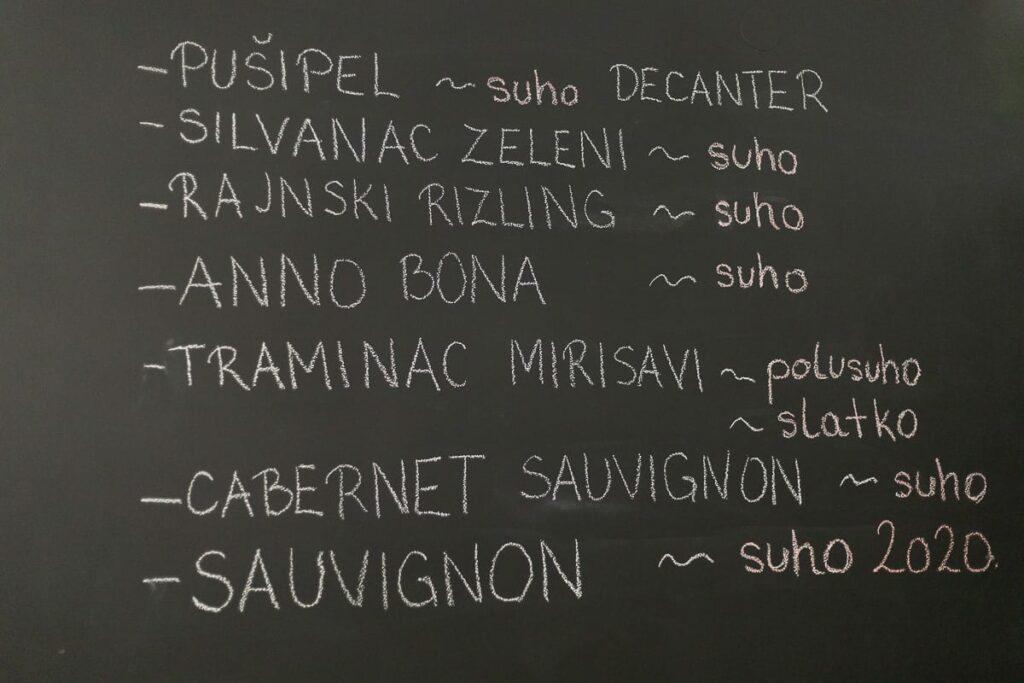 – PUŠIPEL ~ suho DECANTER
– SILVANAC ZELENI ~ suho
– RAJNSKI RIZLING ~ suho
– ANNO BONA ~ suho
– TRAMINAC MIRISAVI ~ polusuho
~ slatko
– CABERNET SAUVIGNON ~ suho
– SAUVIGNON ~ suho 2020.